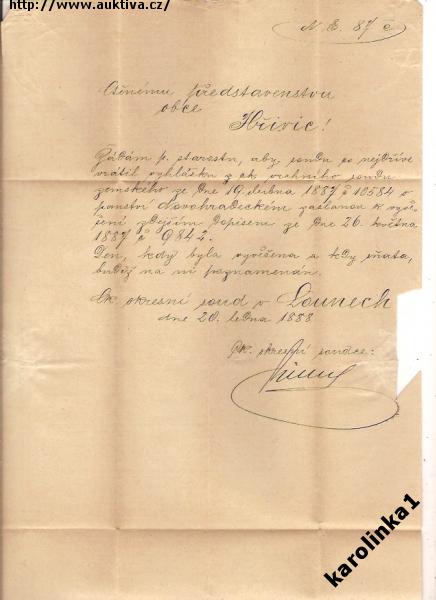 http://www.auktiva.cz/
N. E. 87 c
Ctěnému představenstvu
obce
Hřivic!
Žádám p. starostu, aby soudu co nejdříve
vrátil vyhlášku z ck. vrchního soudu
zemského ze dne 19. dubna 1887 č 10584 o
panství Novohradeckém zaslanou k vyvě-
šení zdejším dopisem ze dne 26. května
1887 č 9842.
Den, kdy byla vyvěšena a kdy sňata,
budiž na ní poznamenán.
Ck. okresní soud v Lounech
dne 20. ledna 1888
Ck. okresní soudce:
karolinka1